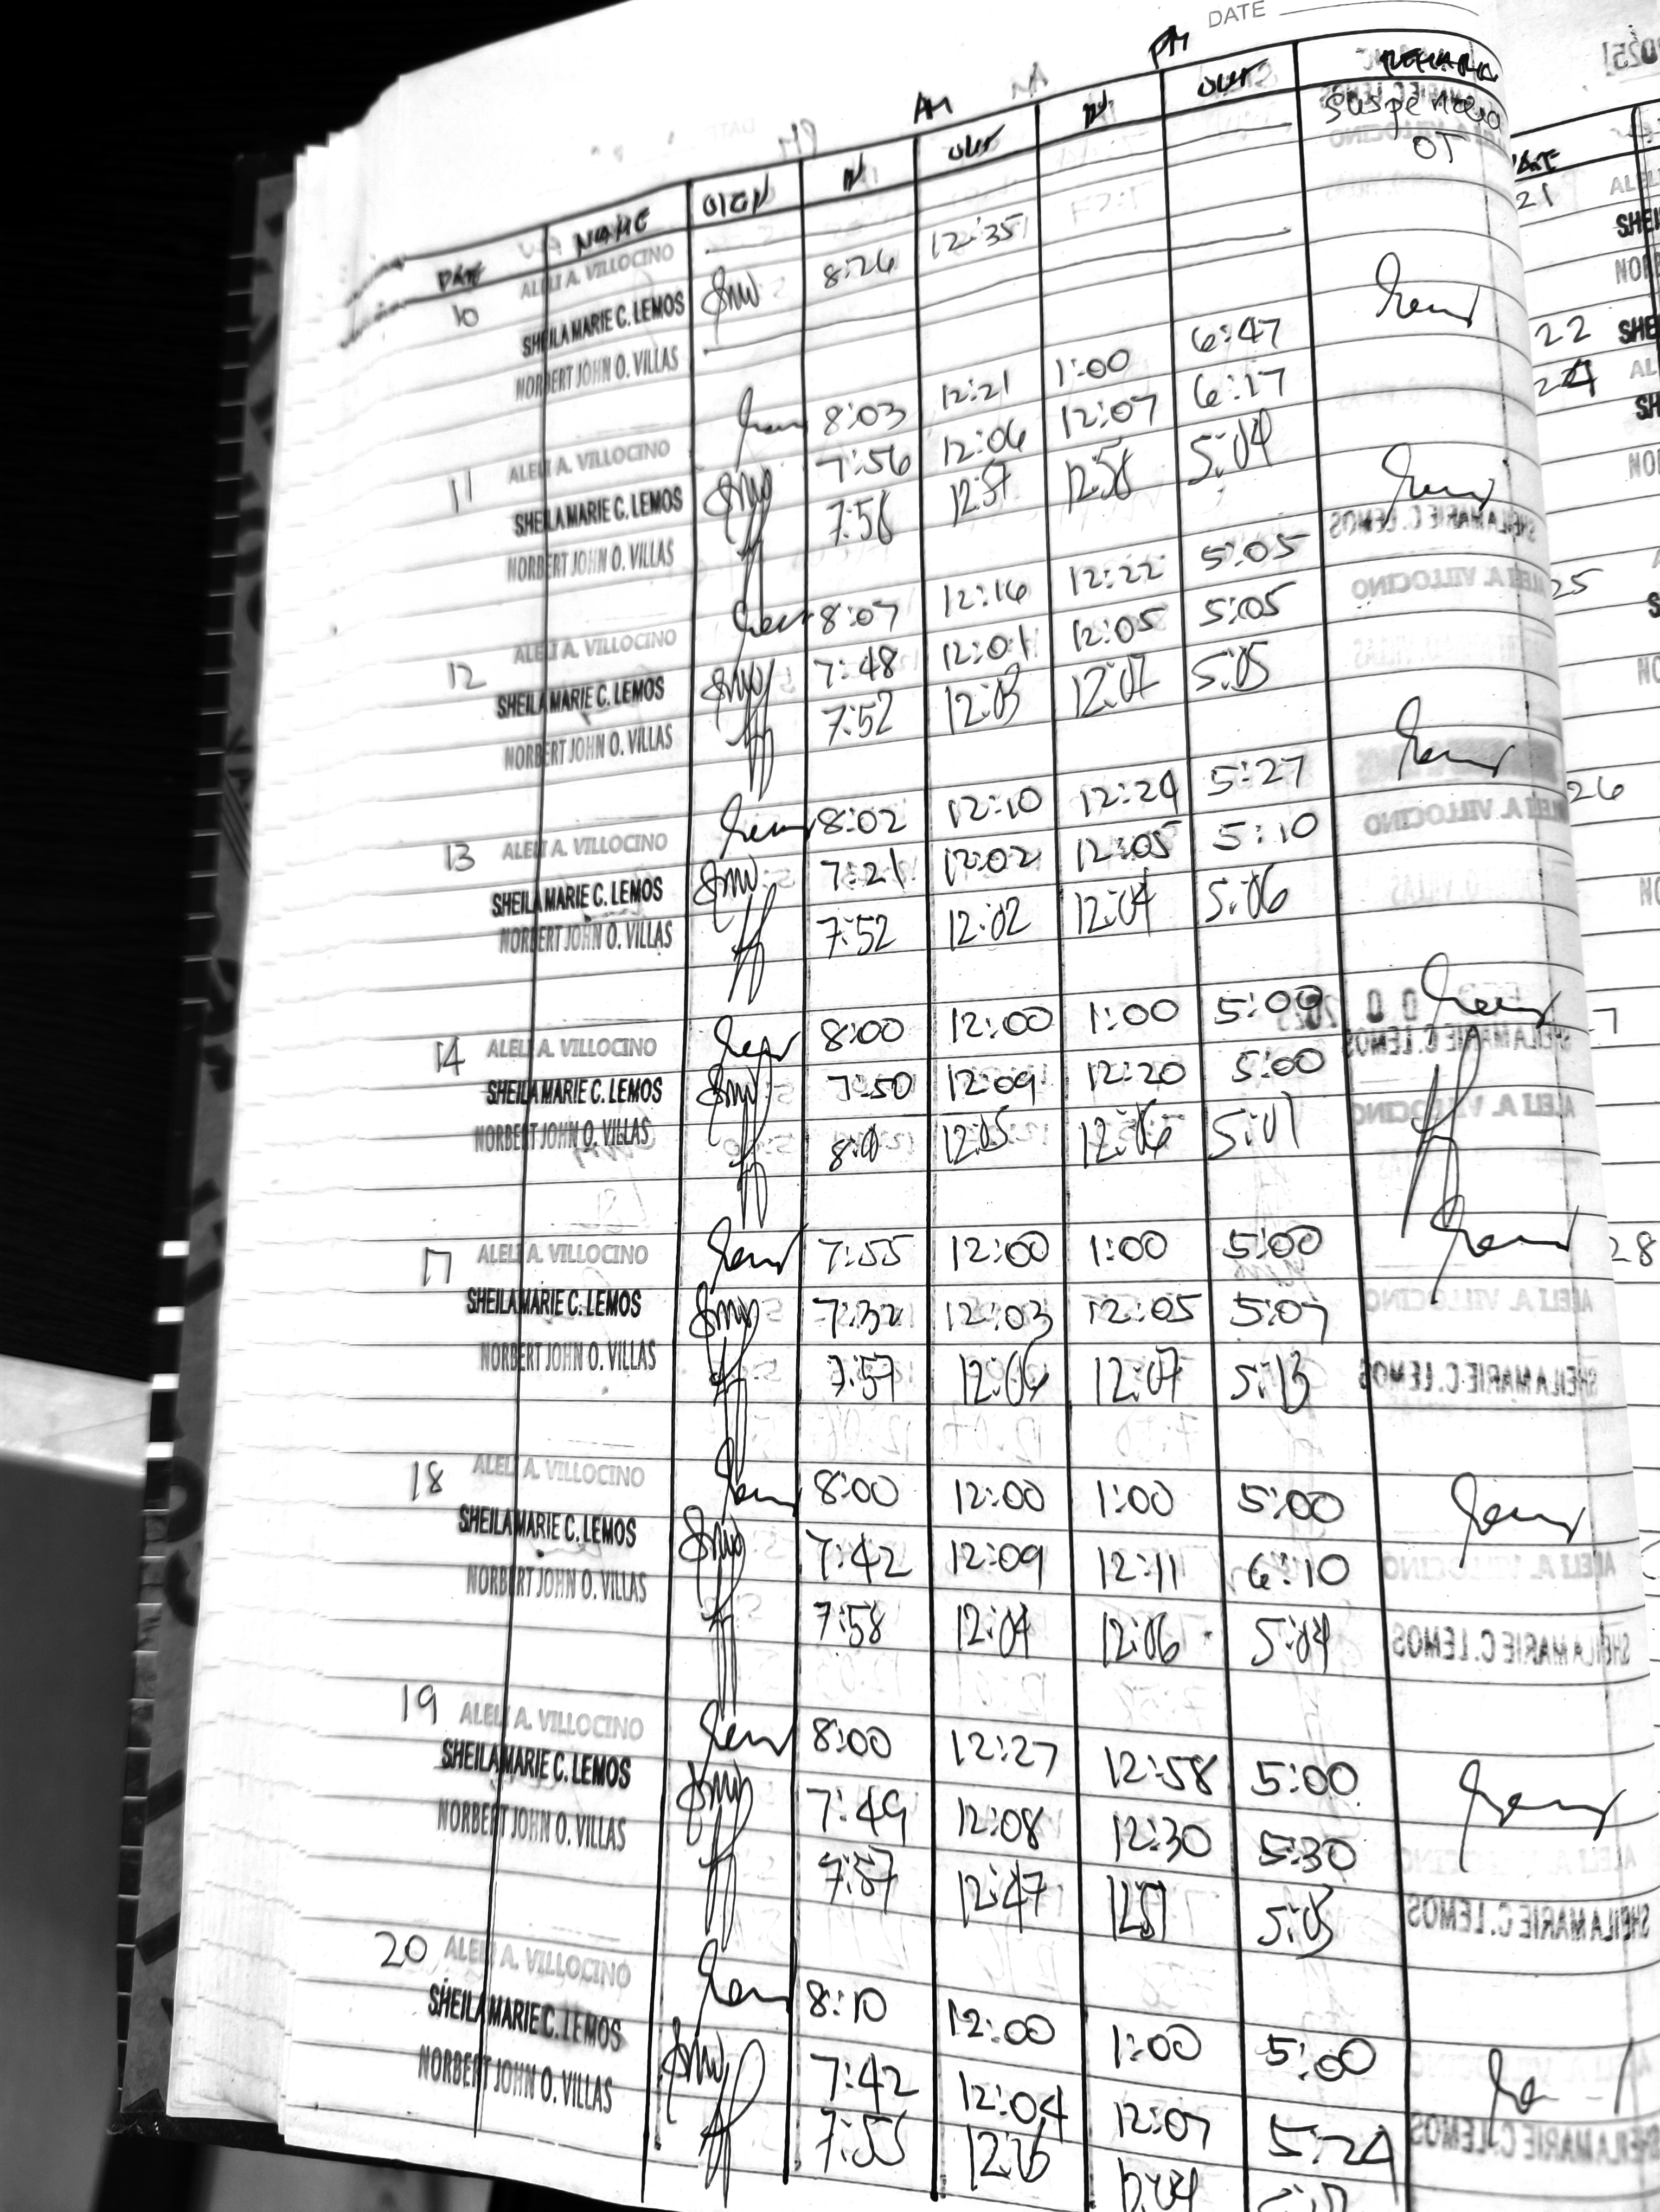 DATE
AM PM
DATE NAME SIGN IN OUT IN OUT REMARKS
10 ALELI A. VILLOCINO Suspended
SHEILA MARIE C. LEMOS 8:26 12:35 OT
NORBERT JOHN O. VILLAS
11 ALELI A. VILLOCINO 8:03 12:21 1:00 6:47
SHEILA MARIE C. LEMOS 7:56 12:06 12:07 6:17
NORBERT JOHN O. VILLAS 7:58 12:57 12:58 5:04
12 ALELI A. VILLOCINO 8:07 12:16 12:22 5:05
SHEILA MARIE C. LEMOS 7:48 12:01 12:05 5:05
NORBERT JOHN O. VILLAS 7:52 12:03 12:07 5:05
13 ALELI A. VILLOCINO 8:02 12:10 12:24 5:27
SHEILA MARIE C. LEMOS 7:21 12:02 12:05 5:10
NORBERT JOHN O. VILLAS 7:52 12:02 12:04 5:06
14 ALELI A. VILLOCINO 8:00 12:00 1:00 5:09
SHEILA MARIE C. LEMOS 7:50 12:09 12:20 5:00
NORBERT JOHN O. VILLAS 12:05 12:06 5:01
17 ALELI A. VILLOCINO 7:55 12:00 1:00 5:00
SHEILA MARIE C. LEMOS 7:32 12:03 12:05 5:07
NORBERT JOHN O. VILLAS 7:57 12:06 12:07 5:13
18 ALELI A. VILLOCINO 8:00 12:00 1:00 5:00
SHEILA MARIE C. LEMOS 7:42 12:09 12:11 6:10
NORBERT JOHN O. VILLAS 7:58 12:04 12:06 5:04
19 ALELI A. VILLOCINO 8:00 12:27 12:58 5:00
SHEILA MARIE C. LEMOS 7:49 12:08 12:30 5:30
NORBERT JOHN O. VILLAS 7:57 12:47 12:51 5:03
20 ALELI A. VILLOCINO 8:10 12:00 1:00 5:00
SHEILA MARIE C. LEMOS 7:42 12:04 12:07 5:24
NORBERT JOHN O. VILLAS 7:55 12:26
21
22
24
25
26
28